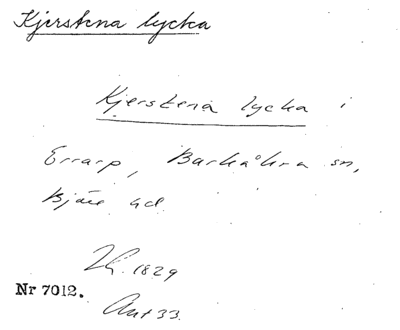 Kjerstena lycka
Kjerstena lycka i
Errarp, Barkåkra sn,
Bjäre hd
1829
Nr 7012.
Ant 33.